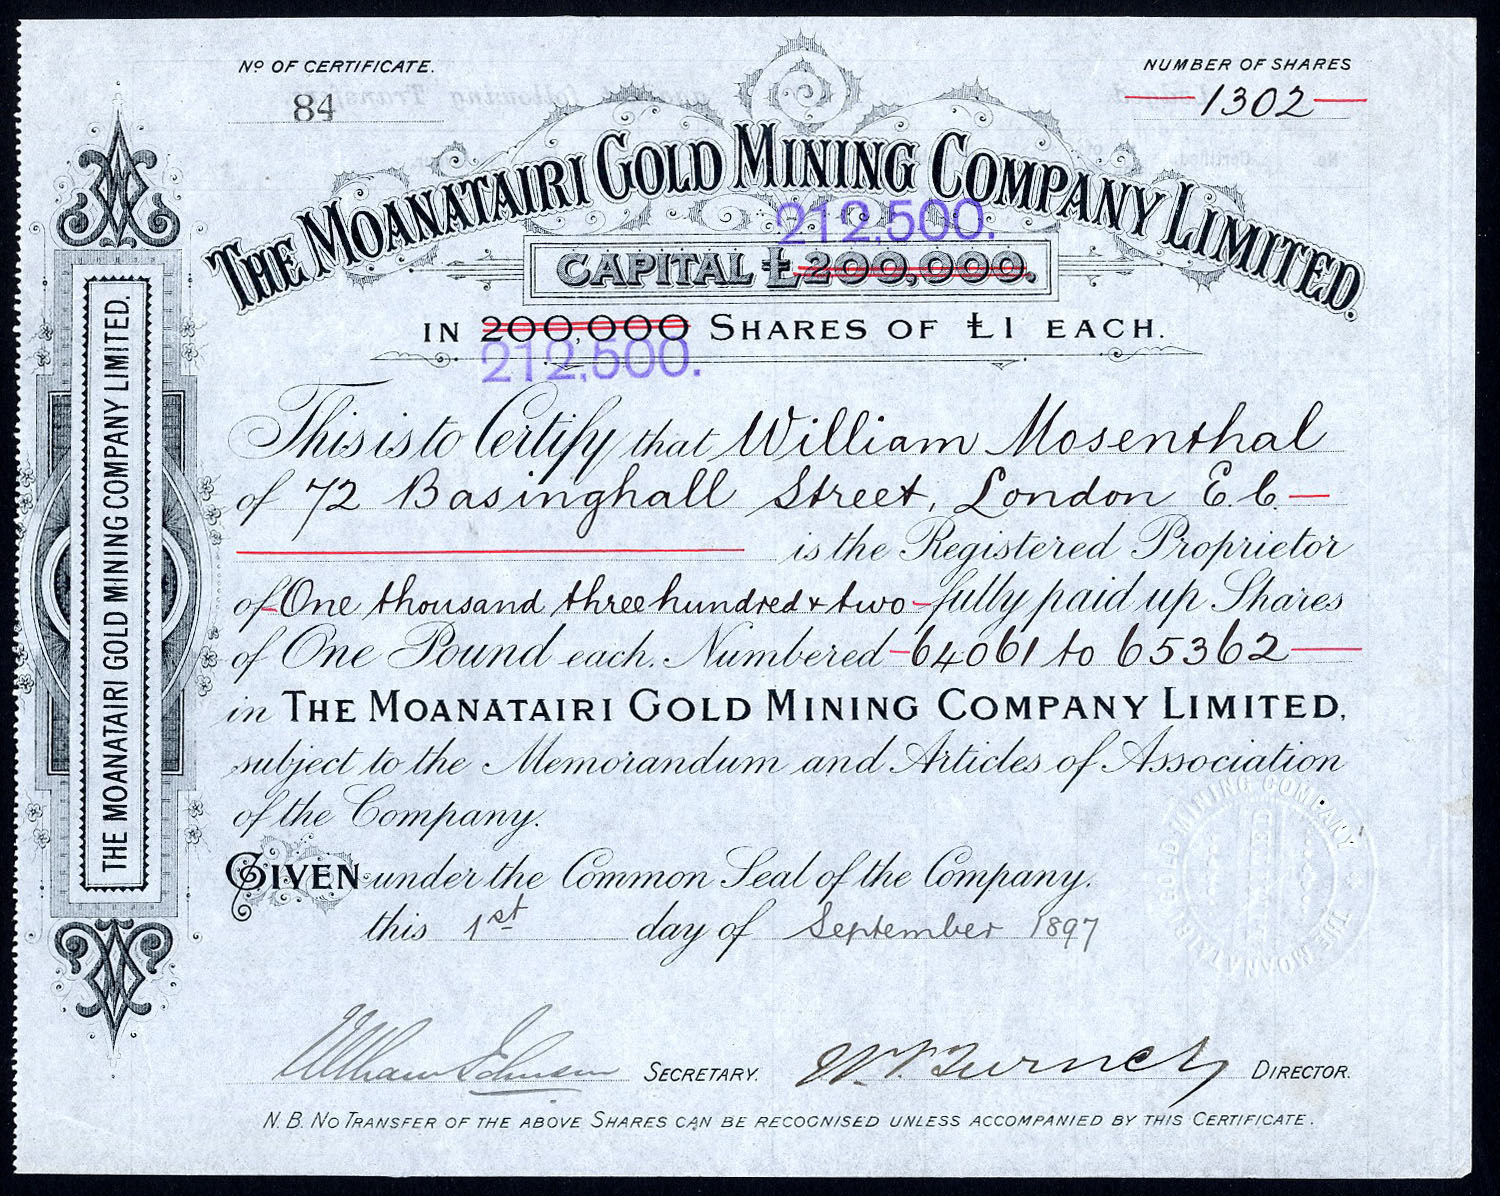 No OF CERTIFICATE.
84
NUMBER OF SHARES
1302
THE MOANATAIRI GOLD MINING COMPANY LIMITED.
212,500.
CAPITAL £200,000.
IN 200,000 SHARES OF £1 EACH.
212,500.
This is to Certify that William Mosenthal
of 72 Basinghall Street, London E.C.
is the Registered Proprietor
of One thousand three hundred & two fully paid up Shares
of One Pound each. Numbered 64061 to 65362
in THE MOANATAIRI GOLD MINING COMPANY LIMITED,
subject to the Memorandum and Articles of Association
of the Company.
GIVEN under the Common Seal of the Company.
this 1st day of September 1897
SECRETARY.
DIRECTOR.
N.B. NO TRANSFER OF THE ABOVE SHARES CAN BE RECOGNISED UNLESS ACCOMPANIED BY THIS CERTIFICATE.
THE MOANATAIRI GOLD MINING COMPANY LIMITED.
THE MOANATAIRI GOLD MINING COMPANY
LIMITED